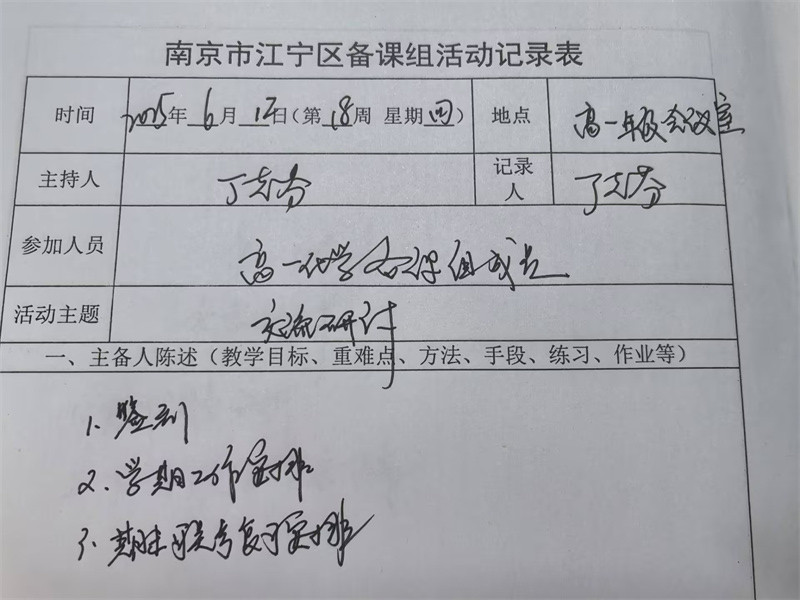 南京市江宁区备课组活动记录表
时间 2025年 6月 12日（第 18周 星期 四） 地点 高一年级会议室
主持人 丁志芬 记录人 丁志芬
参加人员 高一化学备课组成员
活动主题 交流研讨
一、主备人陈述（教学目标、重难点、方法、手段、练习、作业等）
1. 签到
2. 学期工作安排
3. 期末联考复习安排